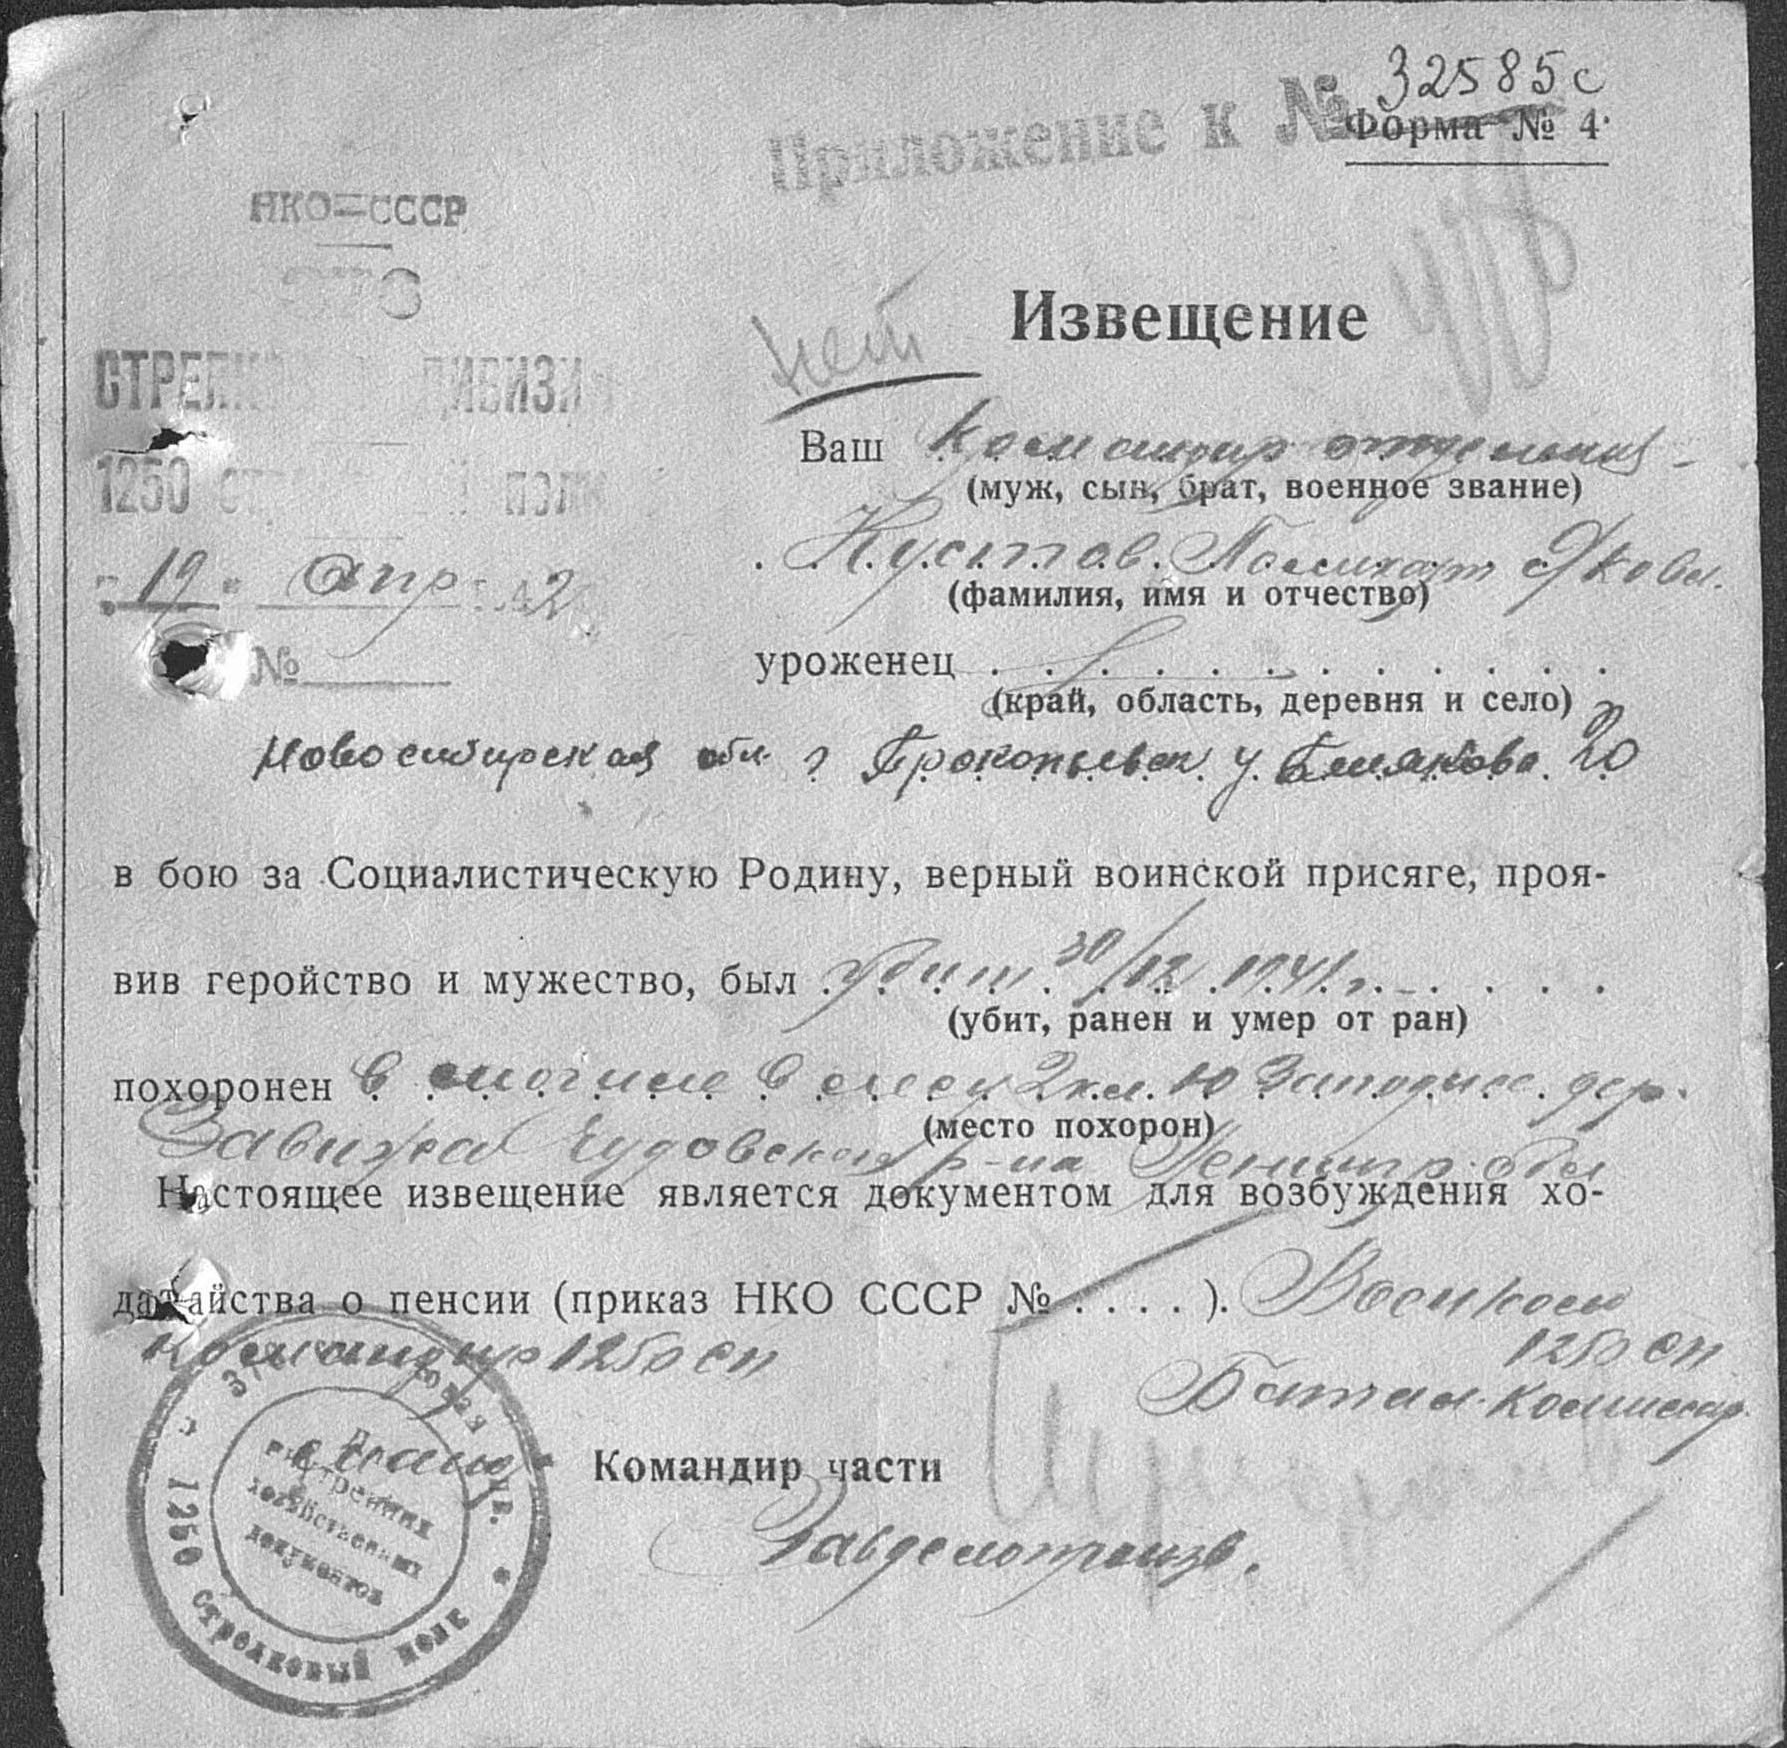 32585с
Приложение к №
Форма № 4
НКО=СССР
376
нет
Извещение
СТРЕЛКОВАЯ ДИВИЗИЯ
Ваш командир отделения
(муж, сын, брат, военное звание)
1250 стрелковый полк
Кустов Поликарп Яковл.
(фамилия, имя и отчество)
"19" апр 1942
№
уроженец
(край, область, деревня и село)
Новосибирская обл. г Прокопьевск у 20
в бою за Социалистическую Родину, верный воинской присяге, проя-
вив геройство и мужество, был убит 30/12 1941 г.
(убит, ранен и умер от ран)
похоронен в могиле в лесу 2 км. Ю Западнее дер.
(место похорон)
Завижа Чудовского р-на Ленингр. обл
Настоящее извещение является документом для возбуждения хо-
датайства о пенсии (приказ НКО СССР № . . . . ). Военком
Командир 1250 сп
1250 сп
Батал. комиссар
Командир части
Завделопроизв.
Для внутренних хозяйственных документов
1250 стрелковый полк